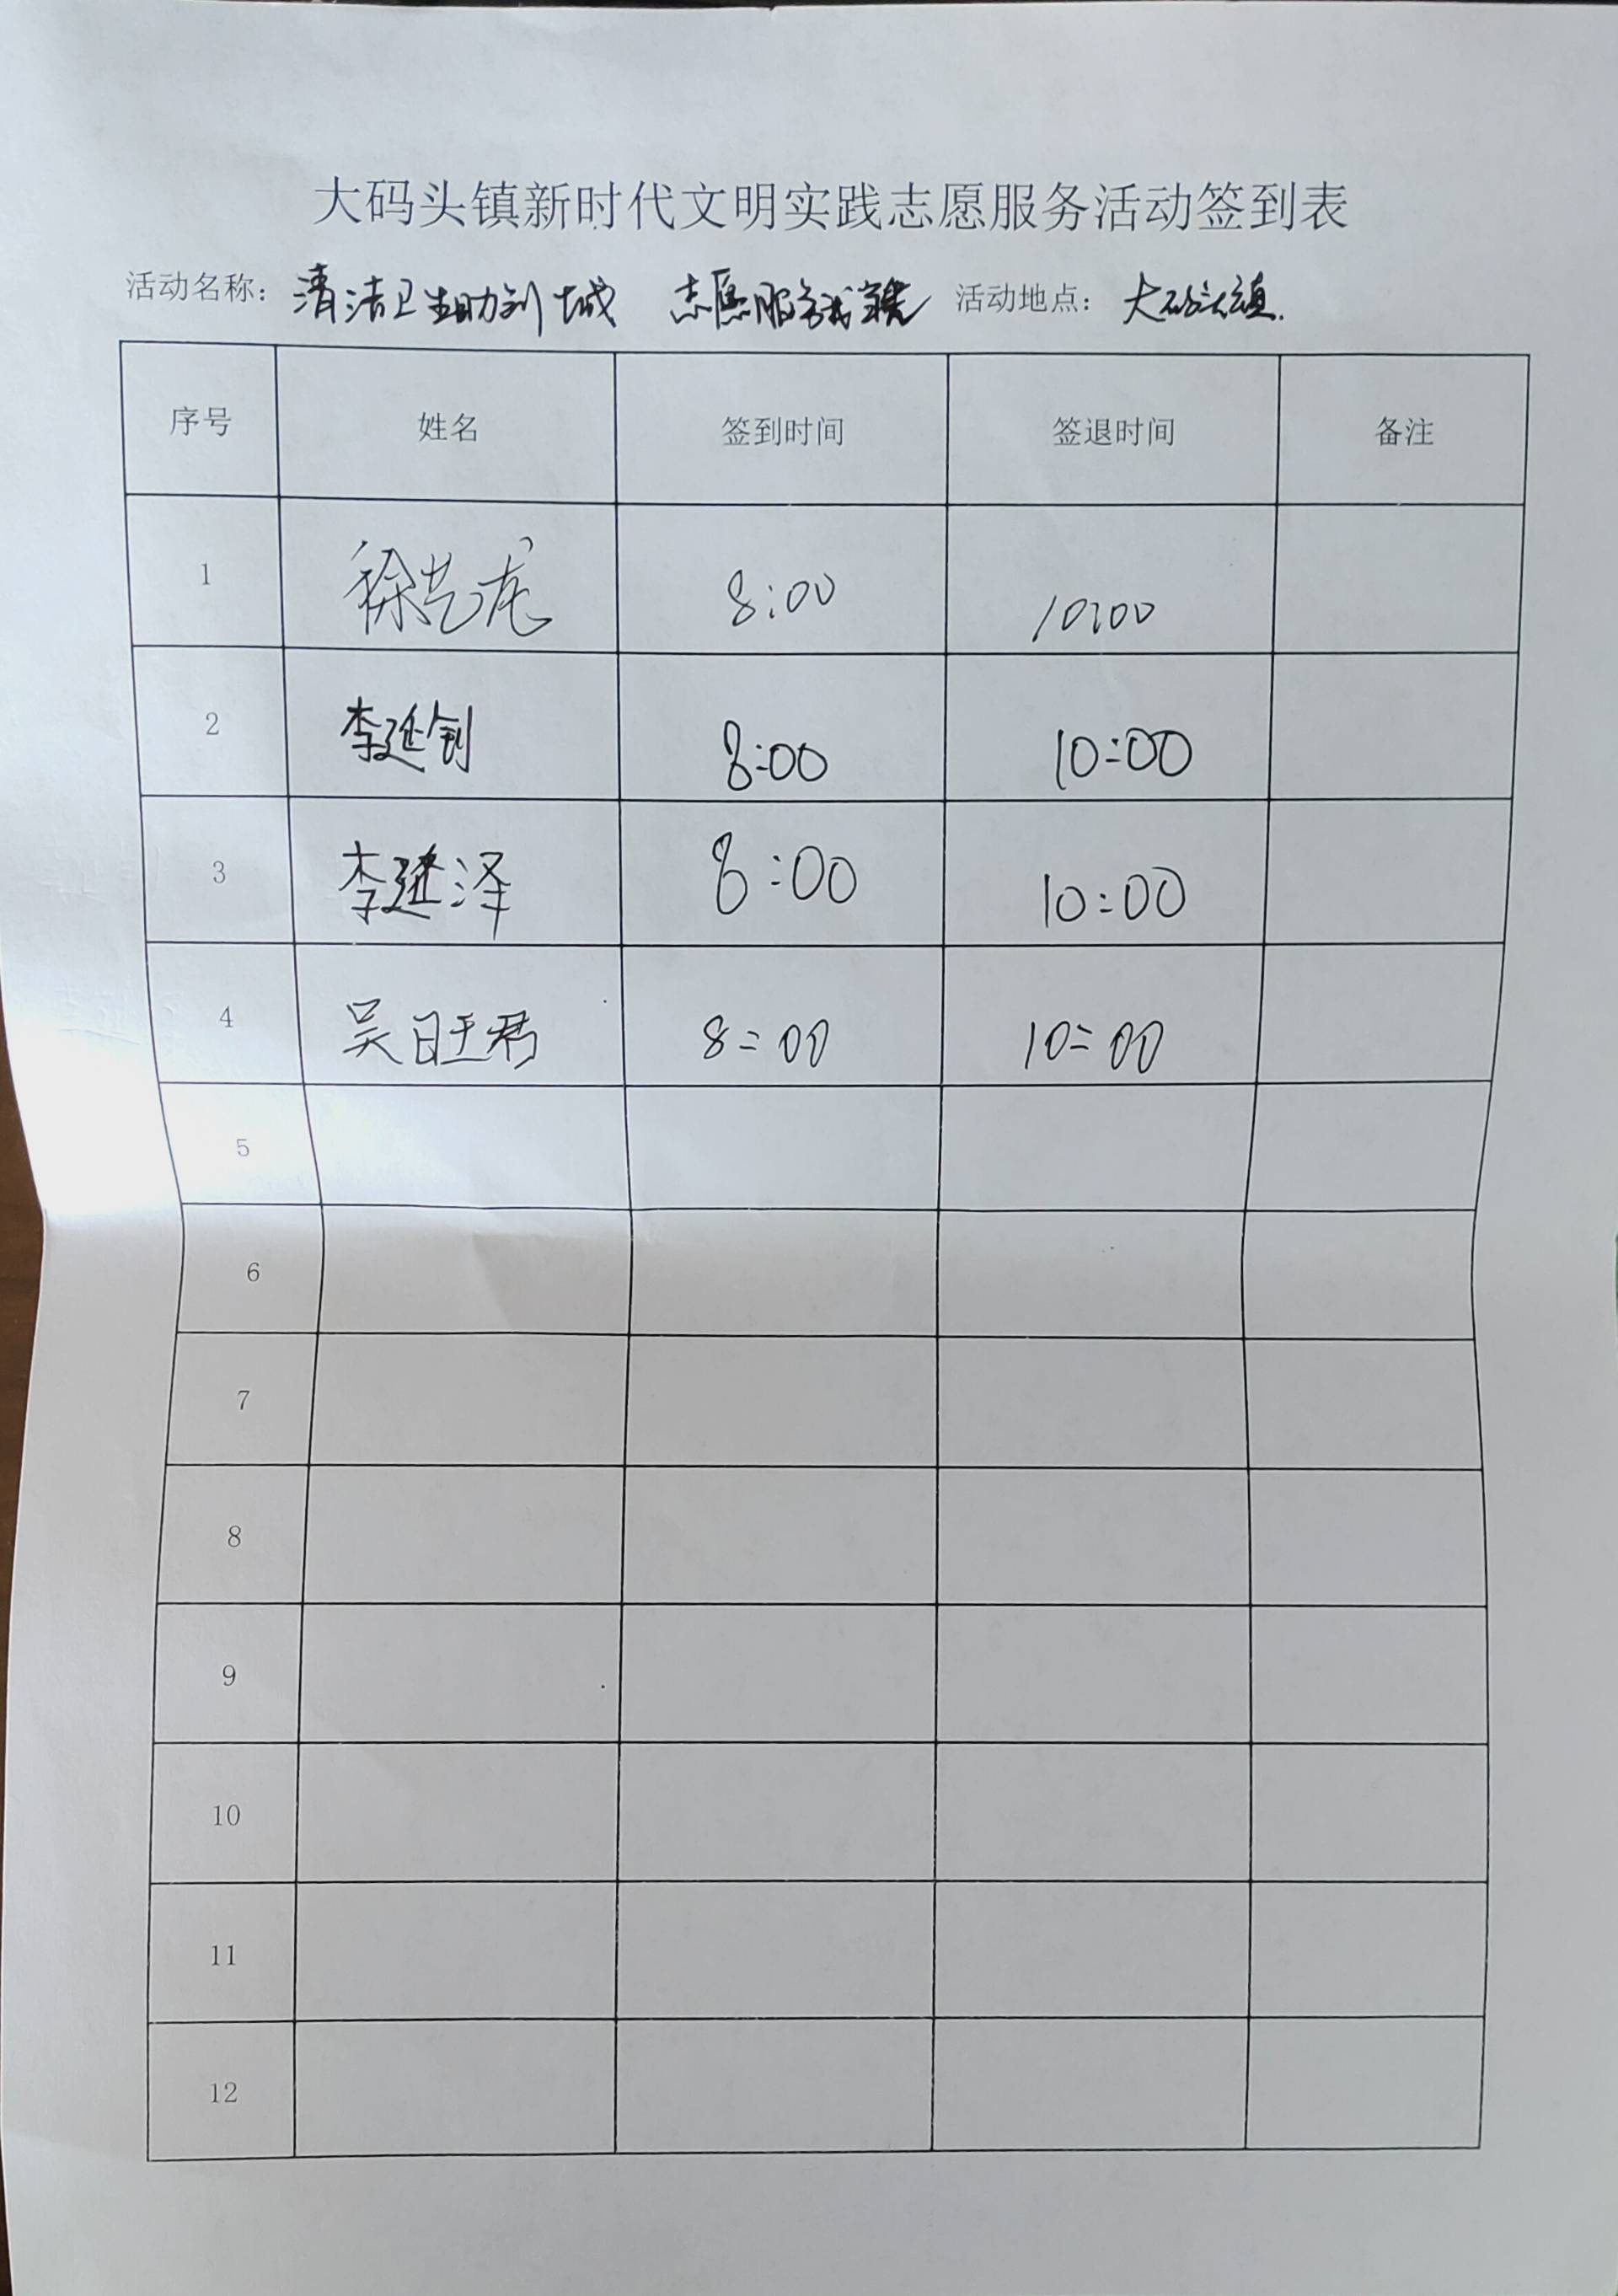 大码头镇新时代文明实践志愿服务活动签到表
活动名称：清洁卫生助创城 志愿服务我先 活动地点：大码头镇.
序号 姓名 签到时间 签退时间 备注
1 徐艺龙 8:00 10:00
2 李延钊 8:00 10:00
3 李延泽 8:00 10:00
4 吴旺君 8:00 10:00
5
6
7
8
9
10
11
12